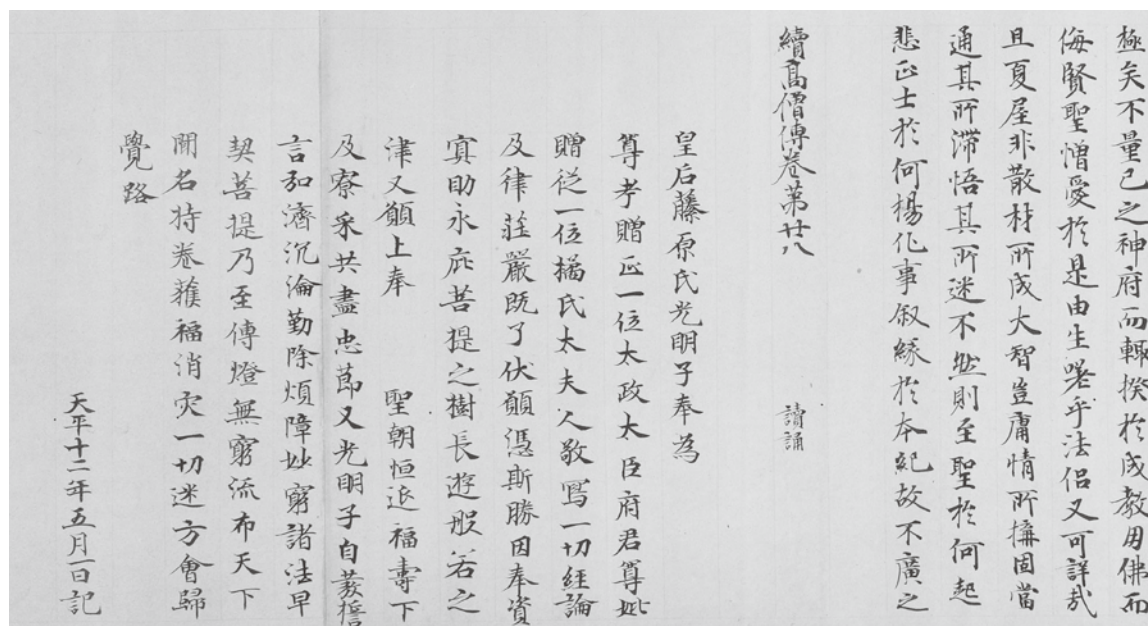 極矣不量己之神府而輙揆於成教用佛而
侮賢聖憎愛於是由生嗟乎法侶又可詳哉
且夏屋非散材所成大智豈庸情所搆固當
通其所滞悟其所迷不然則至聖於何起
悲正士於何揚化事叙縁於本紀故不廣之
續高僧傳卷第廿八
讀誦
皇后藤原氏光明子奉為
尊考贈正一位太政太臣府君尊妣
贈従一位橘氏太夫人敬寫一切経論
及律莊嚴既了伏願憑斯勝因奉資
冥助永庇菩提之樹長遊般若之
津又願上奉 聖朝恒延福壽下
及寮采共盡忠節又光明子自發誓
言弘濟沉淪勤除煩障妙窮諸法早
契菩提乃至傳燈無窮流布天下
聞名持卷獲福消灾一切迷方會歸
覺路
天平十二年五月一日記